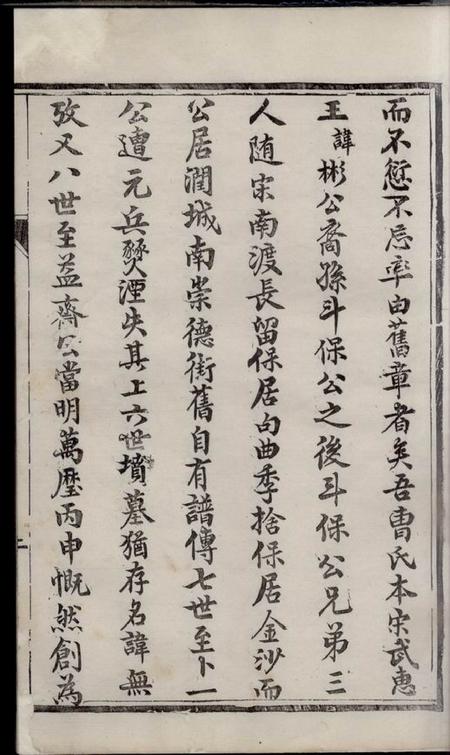 而不愆不忘率由舊章者矣吾曹氏本宋武惠
王諱彬公裔孫斗保公之後斗保公兄弟三
人随宋南渡長留保居句曲季捨保居金沙而
公居潤城南崇德街舊自有譜傳七世至卜一
公遭元兵燹湮失其上六世墳墓猶存名諱無
攷又八世至益齋公當明萬歷丙申慨然創為